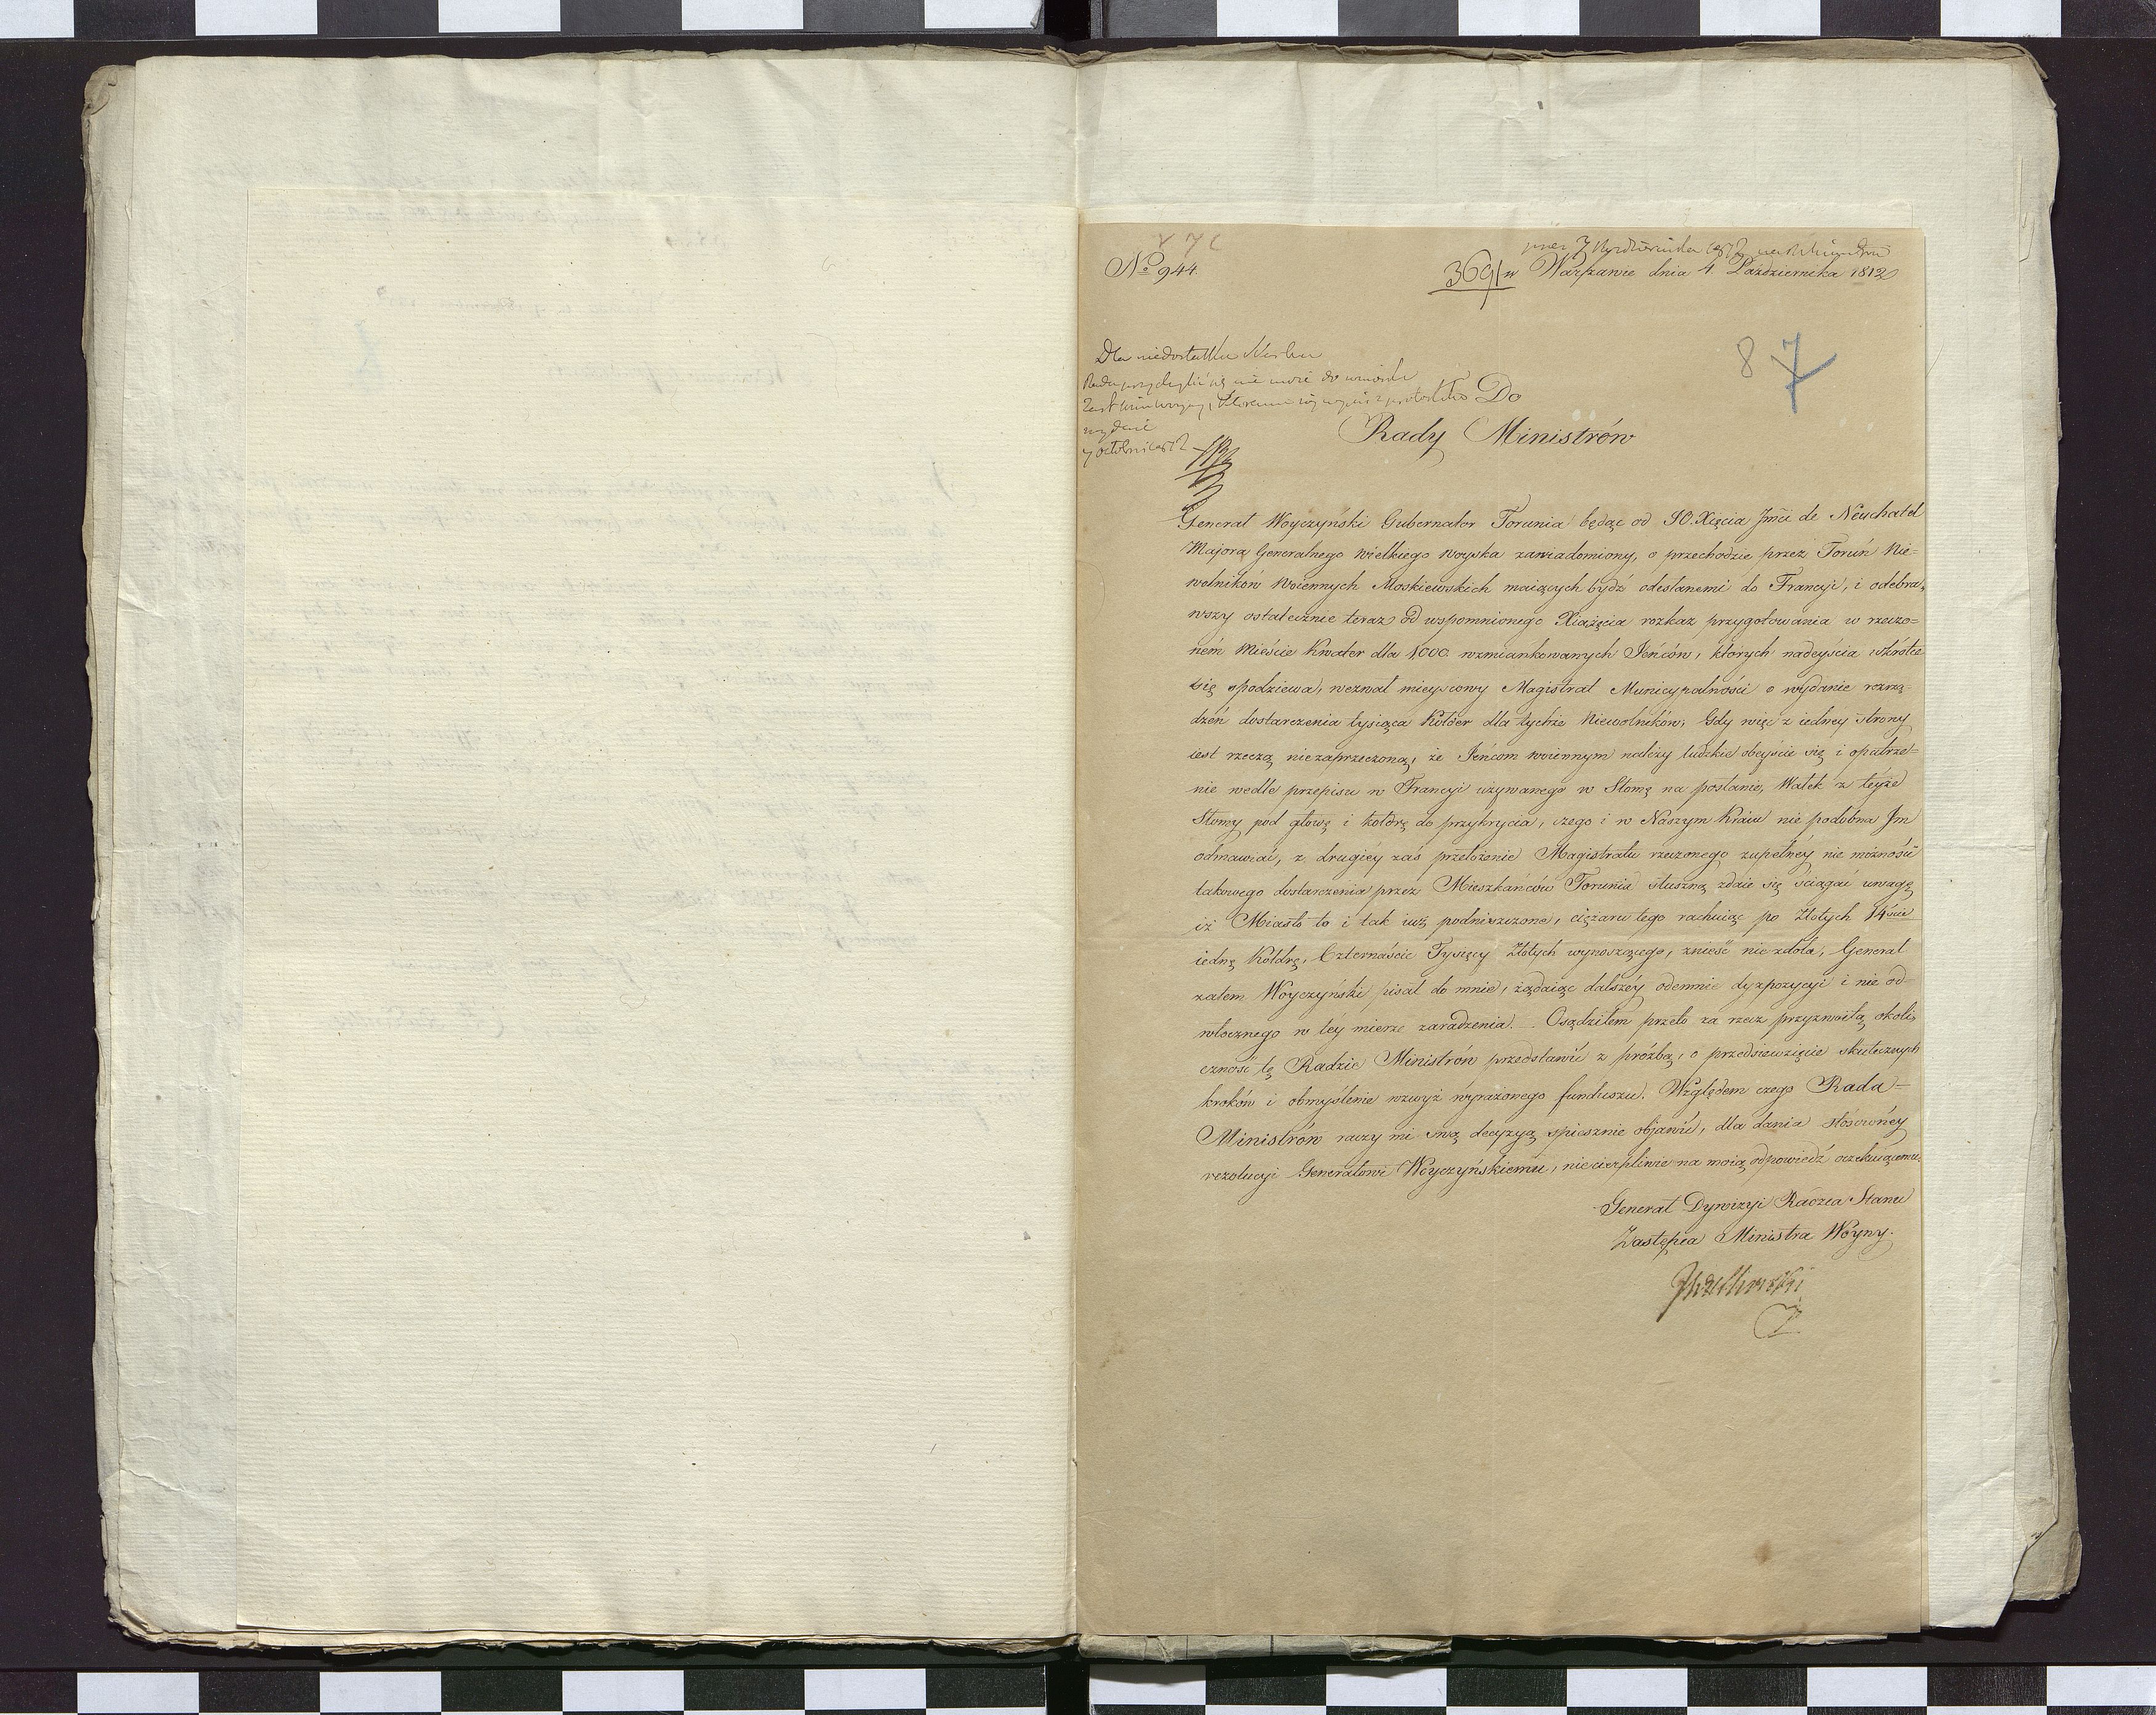 No 944.
3691
7 Października 1812
w Warszawie dnia 4. Października 1812
8 7
Dla niedostatku
Rada przychylić się nie może do wniosku
wydać
7 Octobr 1812
Do
Rady Ministrów
Generał Woyczyński Gubernator Torunia będąc od JO. Xięcia Jmci de Neuchatel
Majora Generalnego wielkiego woyska zawiadomiony, o przechodzie przez Toruń Nie=
wolników Woiennych Moskiewskich maiących bydź odesłanemi do Francyi, i odebra=
wszy ostatecznie teraz od wspomnionego Xiążęcia rozkaz przygotowania w rzeczo=
ném Mieście Kwater dla 1,000. wzmiankowanych Ieńców, których nadeyścia wkrótce
się spodziewa, wezwał mieyscowy Magistrat Municypalności o wydanie rozrzą=
dzeń dostarczenia tysiąca Kołder dla tychże Niewolników, Gdy więc z iedney strony
iest rzeczą niezaprzeczoną, że Ieńcom woiennym należy ludzkie obeyście się i opatrze=
nie wedle przepisu w Francyi używanego w Słomę na posłanie, Wałek z teyże
Słomy pod głowę i kołdrę do przykrycia, czego i w Naszym Kraiu nie podobna Jm
odmawiać, z drugiéy zaś przełożenie Magistratu rzeczonego zupełnéy nie możności
takowego dostarczenia przez Mieszkańców Torunia słuszną zdaie się ściągać uwagę
iż Miasto to i tak iuż podniszczone, ciężaru tego rachuiąc po Złotych 14ście
iedną Kołdrę, Czternaście Tysięcy Złotych wynoszącego, znieść nie zdoła, Generał
zatem Woyczyński pisał do mnie, żądaiąc dalszéy odemnie dyspozycyi i nie od=
włocznego w téy mierze zaradzenia. Osądziłem przeto za rzecz przyzwoitą okoli=
czność tę Radzie Ministrów przedstawić z prózbą, o przedsięwzięcie skutecznych
kroków i obmyślenie wzwyż wyrażonego funduszu. Względem czego Rada=
Ministrów raczy mi swą decyzyą spiesznie objawić, dla dania stósowney
rezolucyi Generałowi Woyczyńskiemu, niecierpliwie na moią odpowiedź oczekuiącemu.
Generał Dywizyi Radzca Stanu
Zastępca Ministra Woyny.